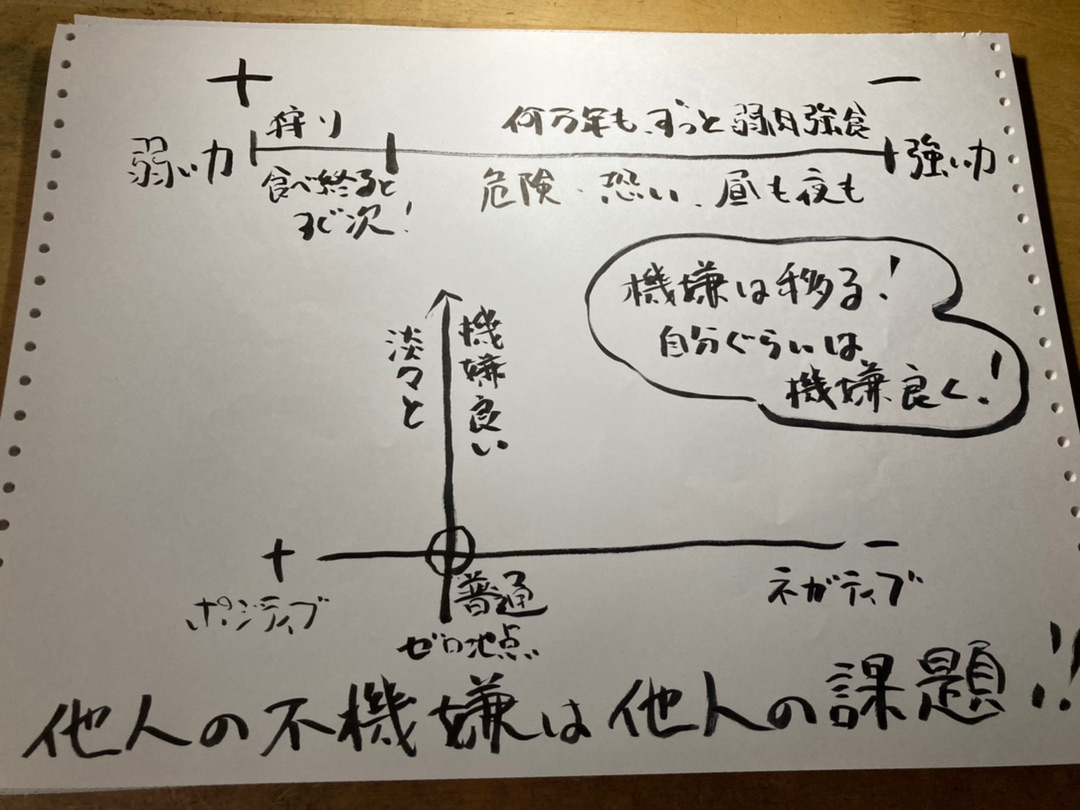 +
−
狩り
何万年も、ずっと弱肉強食
弱い力
強い力
食べ終ると
すぐ次!
危険・恐い、昼も夜も
機嫌は移る!
自分ぐらいは
機嫌良く!
機嫌良い
淡々と
+
−
ポジティブ
普通
ゼロ地点
ネガティブ
他人の不機嫌は他人の課題!!